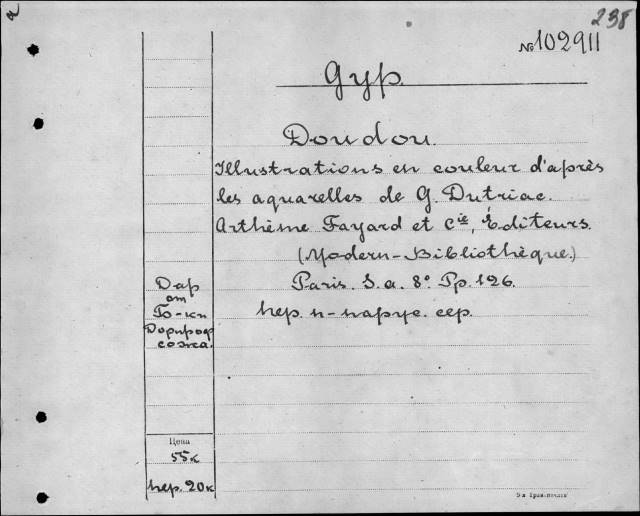 238
№102911
Gyp.
Doudou.
Illustrations en couleur d'après
les aquarelles de G. Dutriac.
Arthème Fayard et Cie, Éditeurs.
(Modern-Bibliothèque.)
Paris. S. a. 8º. Pp. 126.
пер. п-парус. сер.
Дар
от
Го-жи
сожа.
Цена
55к
пер. 20к